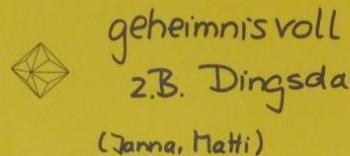 geheimnisvoll
z.B. Dingsda
(Janna, Matti)